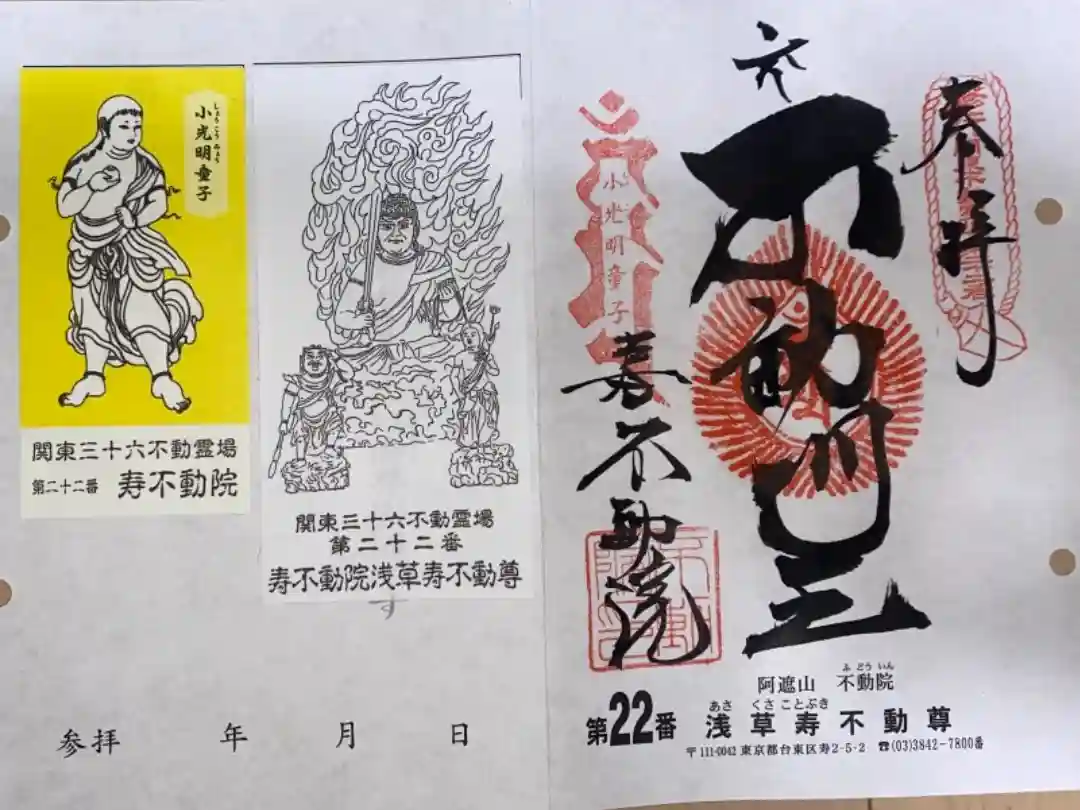 しょうこうみょう
小光明童子
関東三十六不動霊場
第二十二番 寿不動院
関東三十六不動霊場
第二十二番
寿不動院浅草寿不動尊
参拝 年 月 日
奉拝
不動明王
小光明童子
寿不動院
ふどういん
阿遮山 不動院
あさくさことぶき
第22番 浅草寿不動尊
〒111-0042 東京都台東区寿2-5-2 ☎(03)3842-7800番